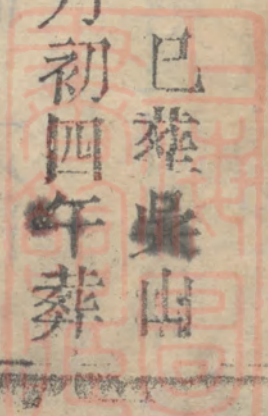 巳葬鼎山
月初四午葬